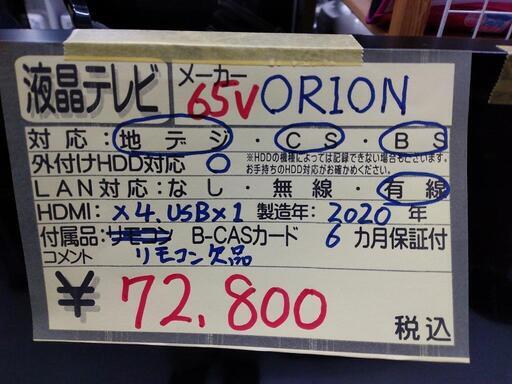 液晶テレビ メーカー 65V ORION
対応:地デジ・CS・BS
外付けHDD対応 ○ ※HDDの機種によっては記録できない場合もございます。
お手持ちのHDD対応がお確かめください。
LAN対応:なし・無線・有線
HDMI: ×4.USB×1 製造年: 2020 年
付属品:リモコン B-CASカード 6 カ月保証付
コメント リモコン欠品
¥72,800 税込